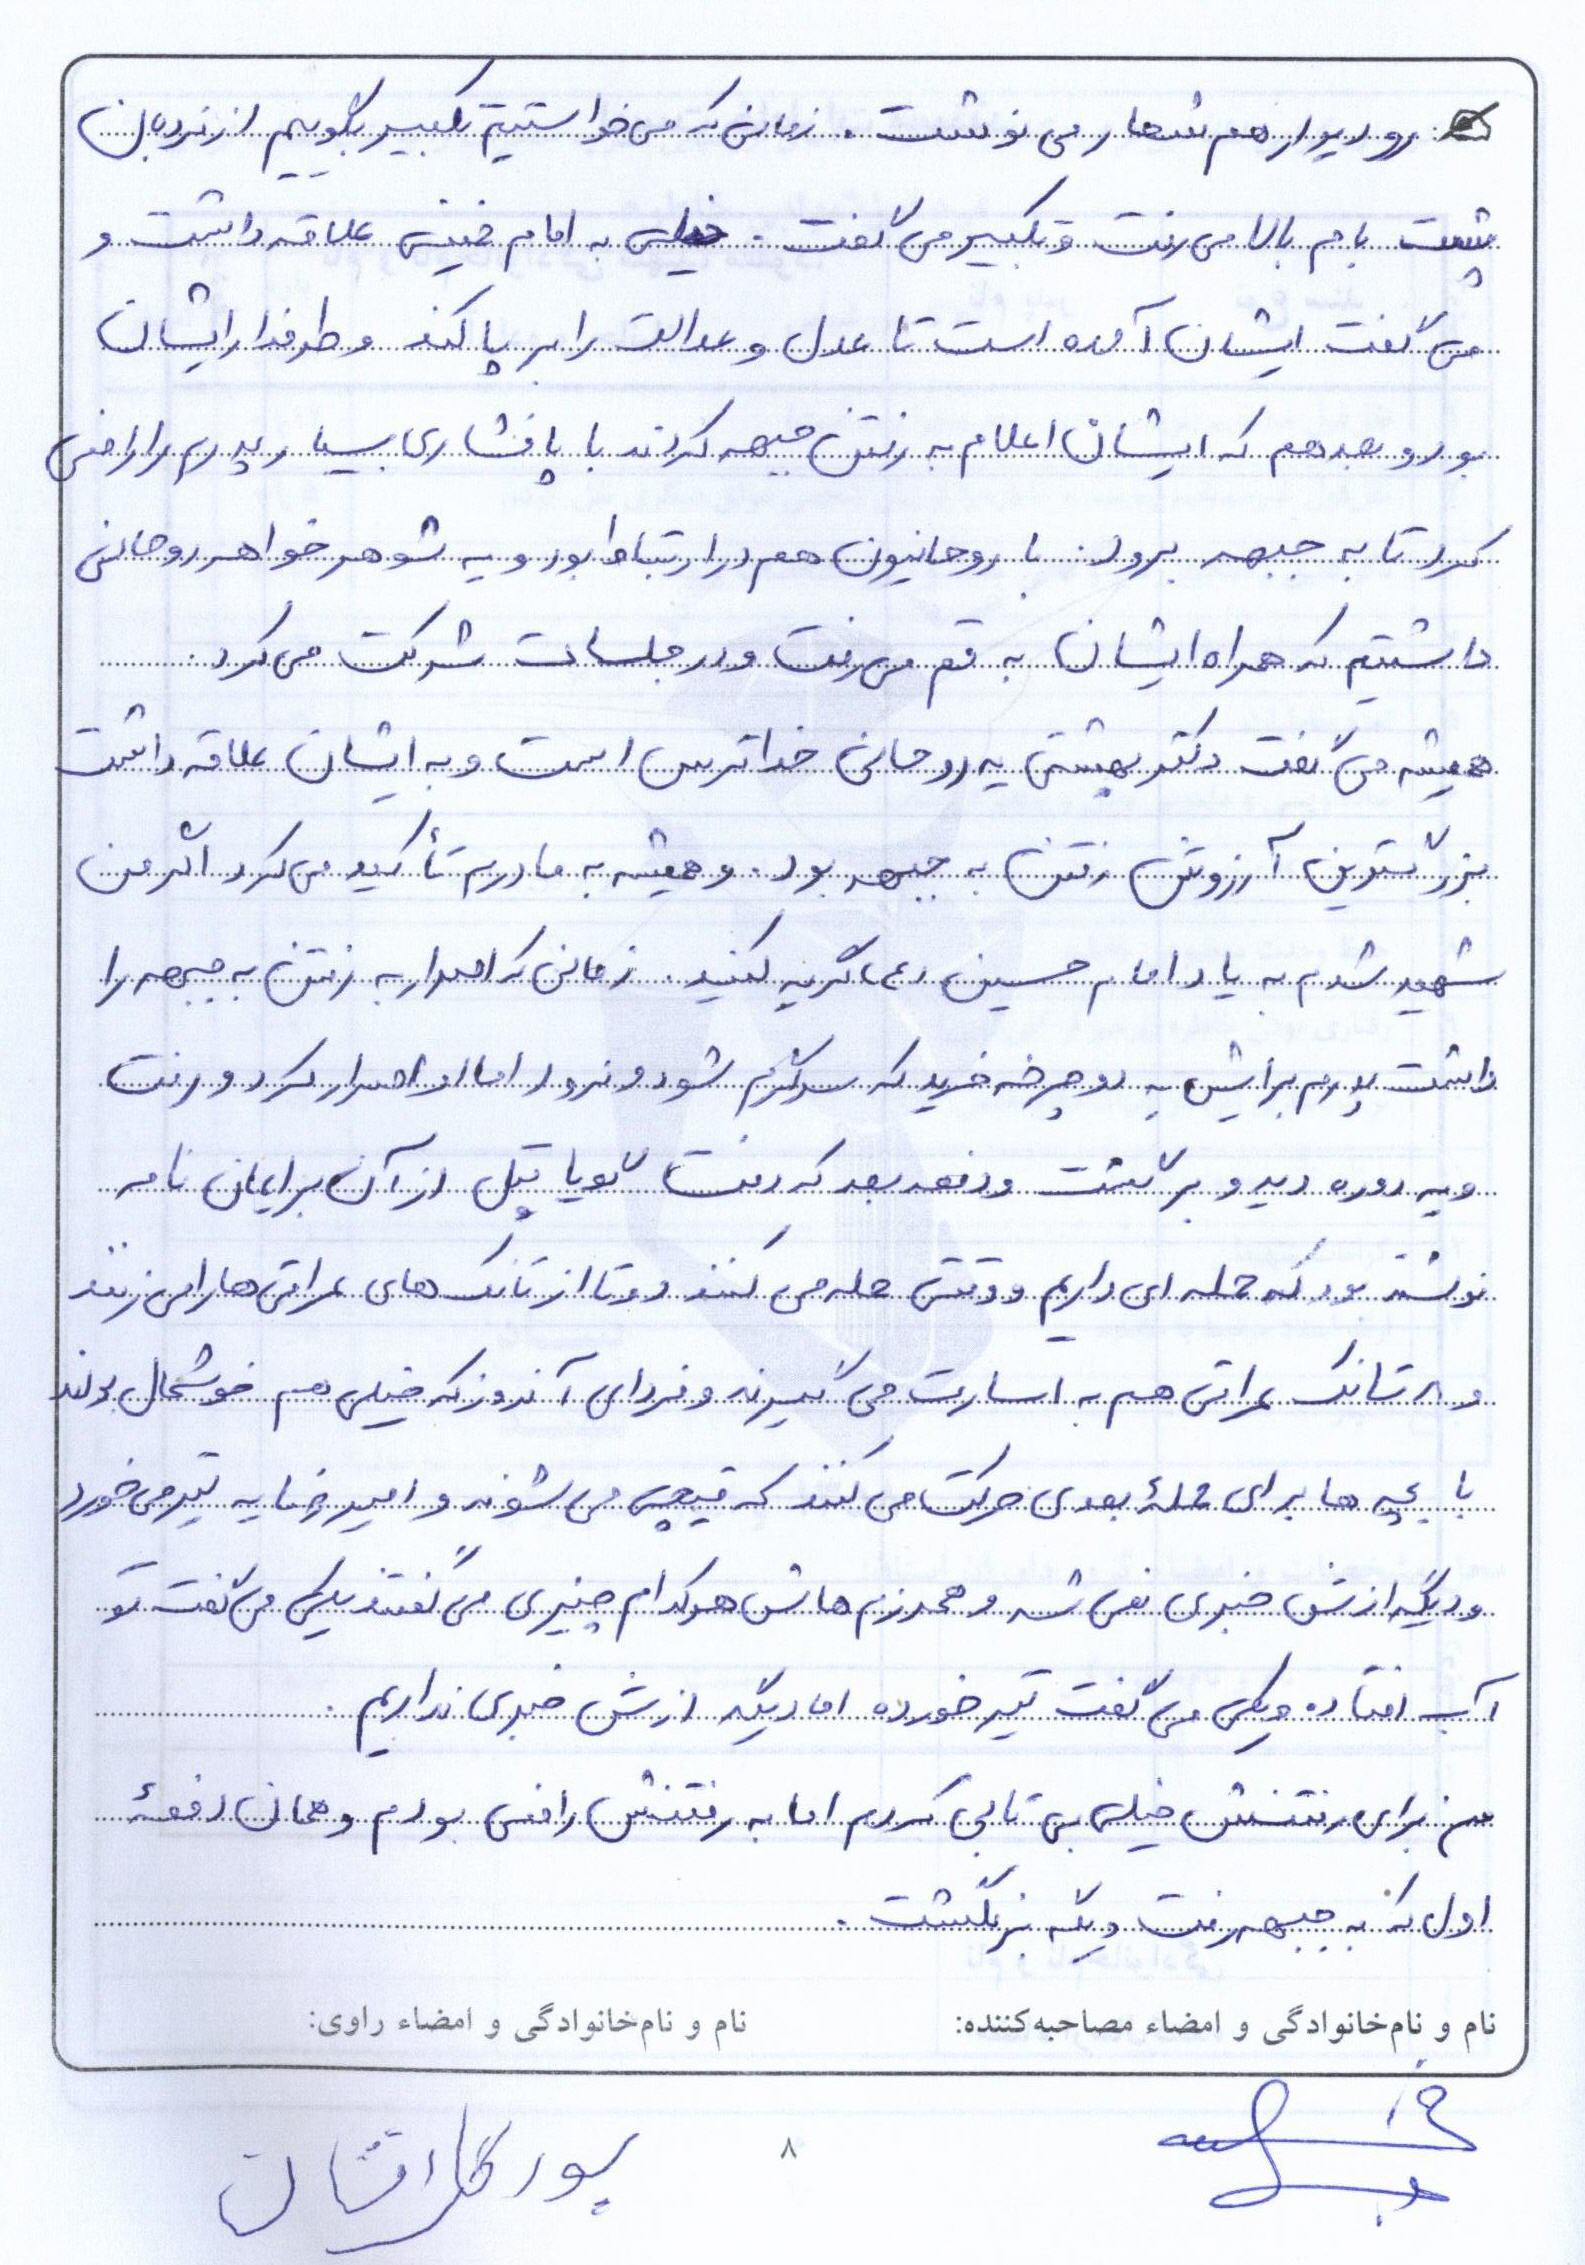 رو دیوار هم شعار می نوشت. زمانی که می خواستیم تکبیر بگوییم از نردبان
پشت بام بالا می رفت و تکبیر می گفت. خیلی به امام خمینی علاقه داشت و
می گفت ایشان آمده است تا عدل و عدالت را بر پا کند و طرفدار ایشان
بود و بعد هم که ایشان اعلام به رفتن جبهه کردند با پافشاری بسیار پدرم را راضی
کرد تا به جبهه برود. با روحانیون هم در ارتباط بود و یه شوهر خواهر روحانی
داشتیم که همراه ایشان به قم می رفت و در جلسات شرکت می کرد.
همیشه می گفت دکتر بهشتی یه روحانی خداترس است و به ایشان علاقه داشت
بزرگترین آرزوش رفتن به جبهه بود. و همیشه به مادرم تأکید می کرد اگر من
شهید شدم به یاد امام حسین دعا گریه کنید. زمانی که اصرار به رفتن به جبهه را
داشت پدرم برایش یه دوچرخه خرید که سرگرم شود و نرود اما او اصرار کرد و رفت
و یه دوره دید و برگشت و دفعه بعد که رفت گویا قبل از آن برایمان نامه
نوشته بود که حمله ای داریم و وقتی حمله می کنند دوتا از تانک های عراقی ها را می زنند
و ۸ تانک عراقی هم به اسارت می گیرند و فردای آنروز که خیلی هم خوشحال بودند
با بچه ها برای حملهٔ بعدی حرکت می کنند که قیچی می شوند و امیررضا یه تیر می خورد
و دیگه ازش خبری نمی شه و همرزم هاش هرکدام چیزی می گفتند یکی می گفت تو
آب افتاده و یکی می گفت تیر خورده اما دیگه ازش خبری نداریم.
من برای رفتنش خیلی بی تابی کردم اما به رفتنش راضی بودم و همان دفعهٔ
اول که به جبهه رفت دیگه برنگشت.
نام و نام‌خانوادگی و امضاء مصاحبه‌کننده:
نام و نام‌خانوادگی و امضاء راوی:
پور گل افشان
۸